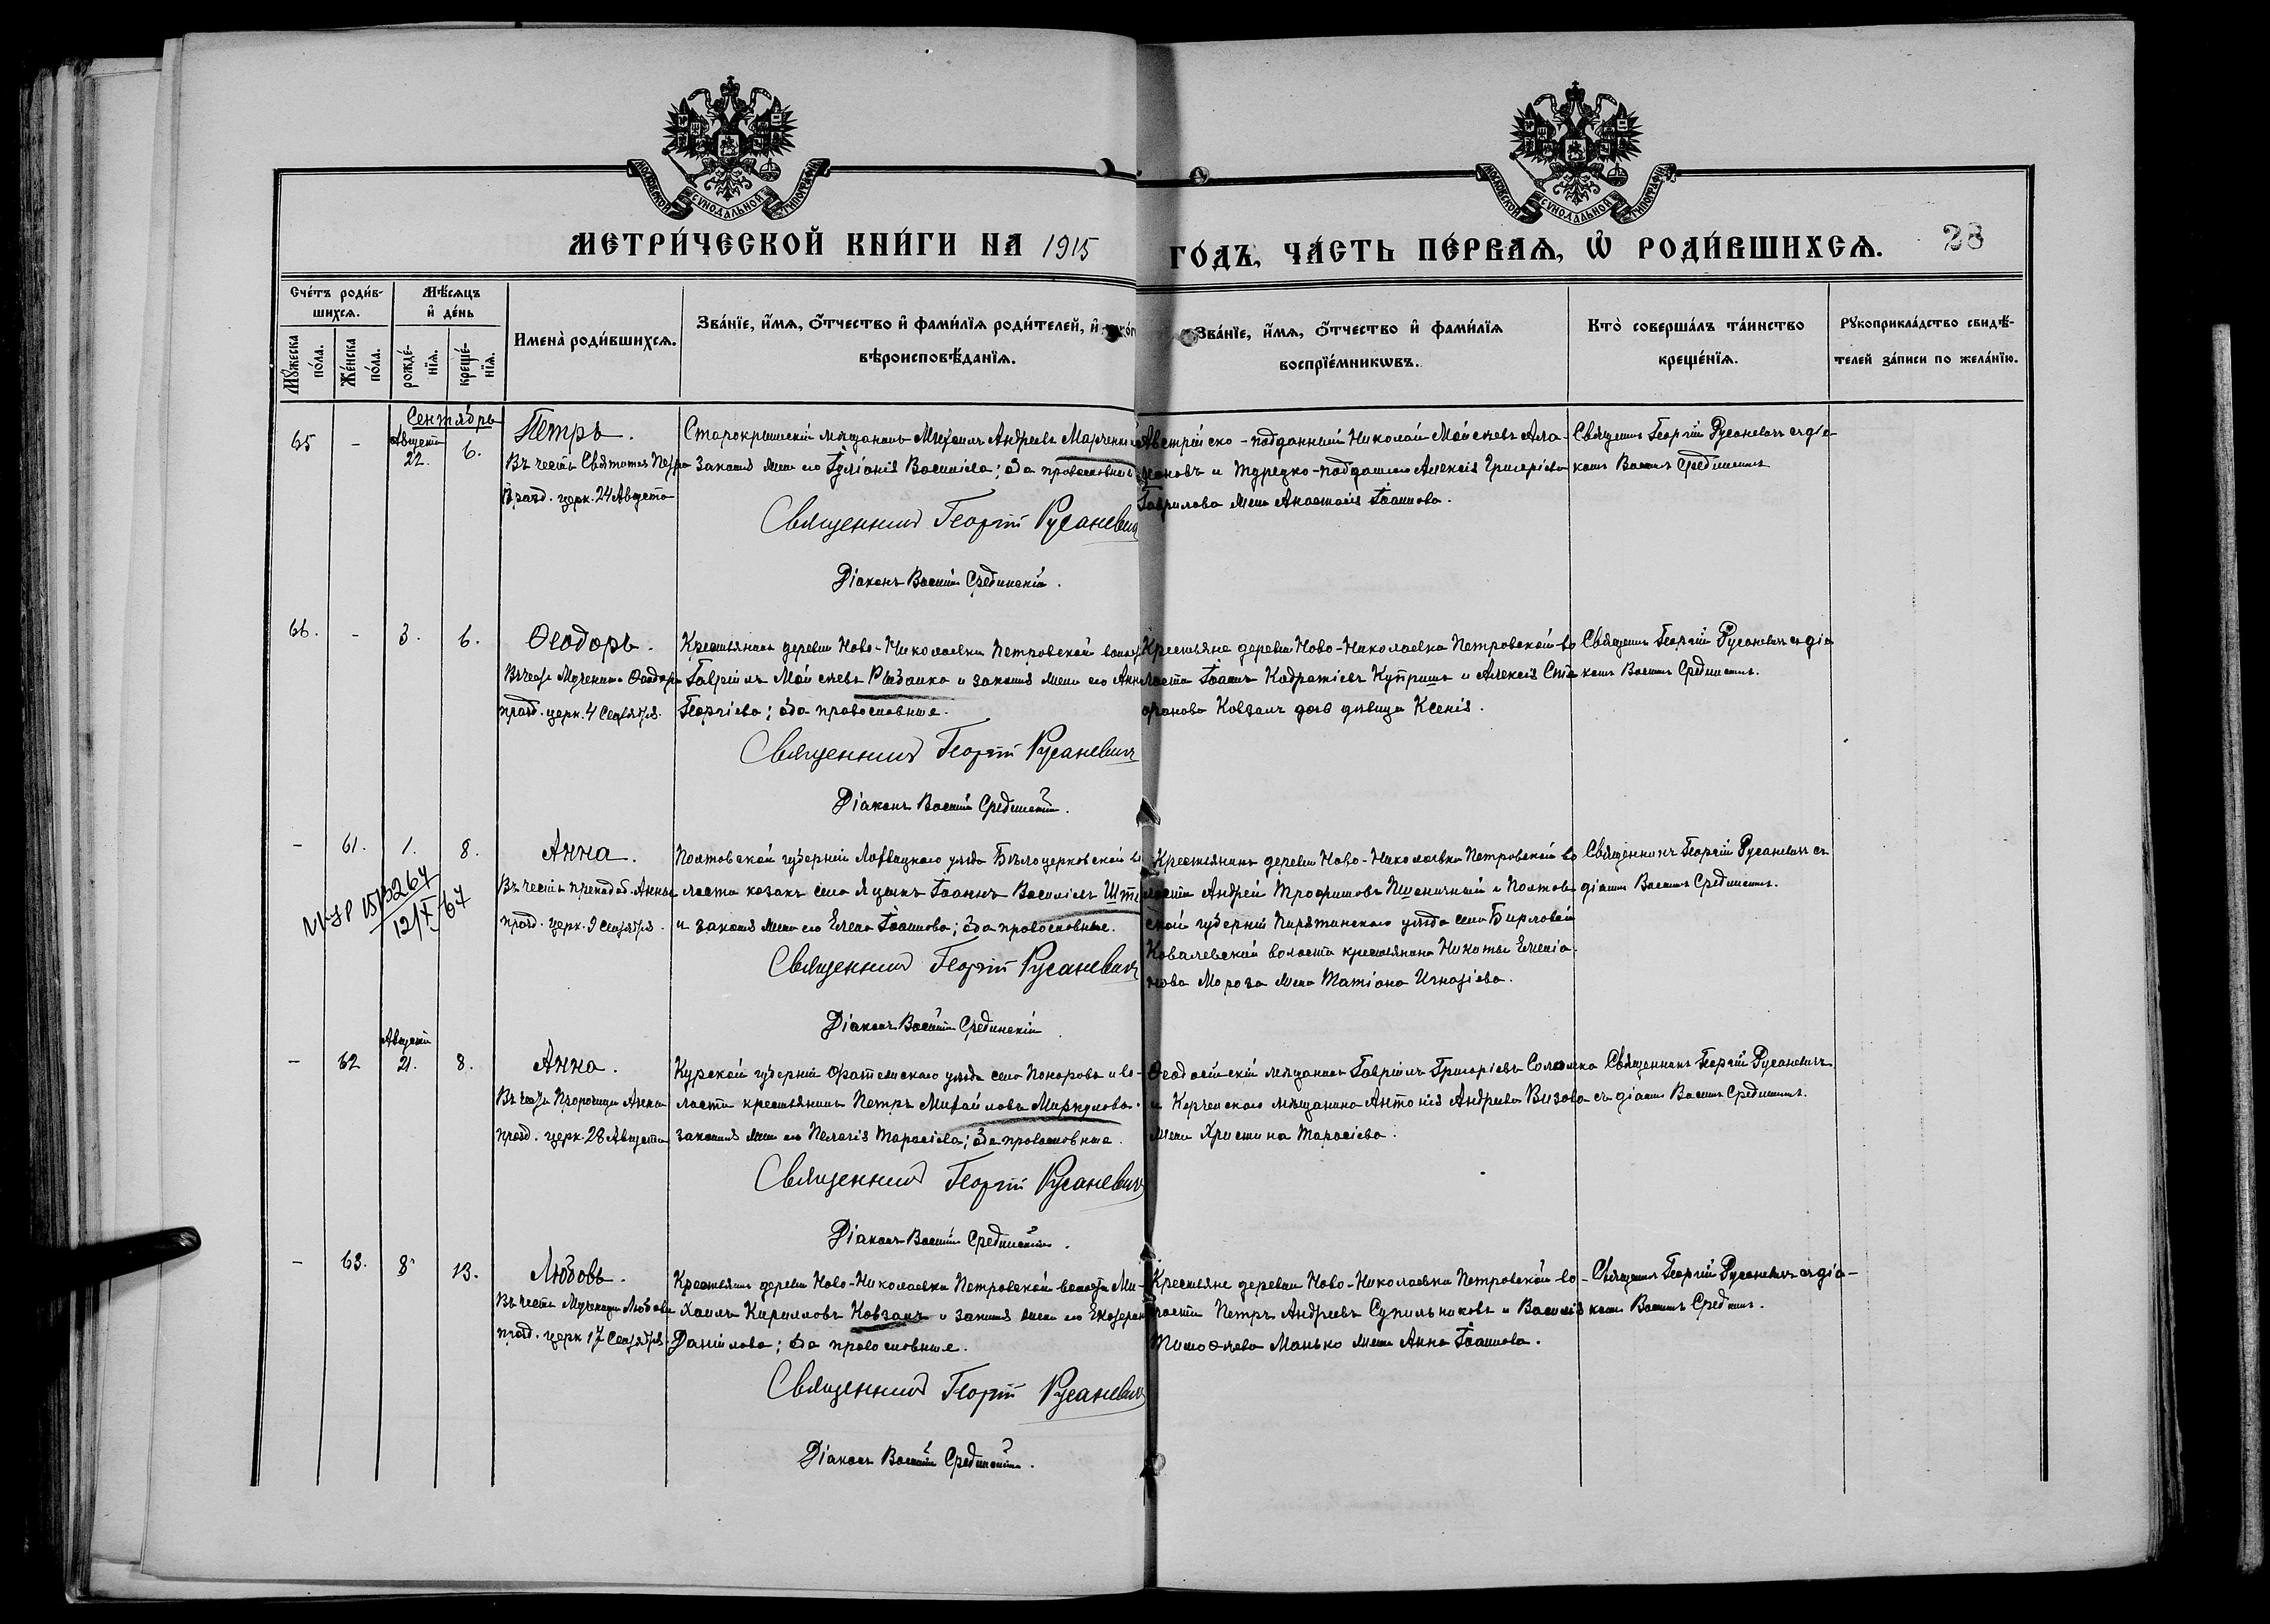 МОСКОВСКОЙ СѴНОДАЛЬНОЙ ТИПОГРАФІИ
МОСКОВСКОЙ СѴНОДАЛЬНОЙ ТИПОГРАФІИ
МЕТРИ́ЧЕСКОЙ КНИ́ГИ НА 1915
ГО́ДЪ, ЧА́СТЬ ПЕ́РВАѦ, Ѡ РОДИ́ВШИХСѦ.
28
Сче́тъ роди́в-
шихсѧ.
Мѣ́сѧцъ
и де́нь
Мꙋ́жеска
по́ла.
Же́нска
по́ла.
рожде́-
нїѧ.
креще́-
нїѧ.
Имена̀ роди́вшихсѧ.
Зва́нїе, и́мѧ, о́тчество и фами́лїѧ роди́телей, и
вѣроисповѣ́данїѧ.
Зва́нїе, и́мѧ, о́тчество и фами́лїѧ
воспрїе́мникѡвъ.
Кто̀ соверша́лъ та́инство
креще́нїѧ.
Рꙋкоприкла́дство свидѣ́-
телей за́писи по жела́нїю.
Сентябрь
65
-
Августа
22.
6.
Петръ.
Въ честь Святителя Петра
празд. церк. 24 Августа
Старокрымскій мѣщанинъ Михаилъ Андреевъ Марченко и
законная жена его Іуліанія Васильева; оба православные
Священникъ Георгій Русаневичъ
Діаконъ Василій Срединскій.
Австрійско-подданный Николай Моисеевъ
и турецко-подданнаго Алексія Григоріева
Гаврилова жена Анастасія Іоаннова.
Священникъ Георгій Русаневичъ съ діа-
кономъ Василіемъ Срединскимъ
66.
-
3.
6.
Ѳеодоръ.
Въ честь Мученика Ѳеодора
празд. церк. 4 Сентября.
Крестьянинъ деревни Ново-Николаевки Петровской волости
Гавріилъ Моисеевъ Рыбалка и законная жена его Анна
Георгіева; оба православные.
Священникъ Георгій Русаневичъ
Діаконъ Василій Срединскій.
Крестьяне деревни Ново-Николаевки Петровской во-
лости Іоаннъ Кодратіевъ Купришъ и Алексія Сте-
фанова Ковзалъ дочь дѣвица Ксенія.
Священникъ Георгій Русаневичъ съ діа
кономъ Василіемъ Срединскимъ.
-
61.
1.
8.
Анна.
Въ честь преподоб. Анны
празд. церк. 9 Сентября.
12/X-67
Полтавской губерніи Лохвицкаго уѣзда Бѣлоцерковской во
лости козакъ села Яцынъ Іоаннъ Василіевъ
и законная жена его Елена Іоаннова; оба православные.
Священникъ Георгій Русаневичъ
Діаконъ Василій Срединскій
Крестьянинъ деревни Ново-Николаевки Петровской во
лости Андрей Трофимовъ Пшеничный и Полтав
ской губерніи Пирятинскаго уѣзда села Бирловки
Ковалевской волости крестьянина Никиты Емеліа-
нова Мороза жена Татіана Игнатіева.
Священникъ Георгій Русаневичъ съ
діакономъ Василіемъ Срединскимъ.
-
62
Августа
21.
8.
Анна.
Въ честь Пророчицы Анны
празд. церк. 28 Августа
Курской губерніи Фатежскаго уѣзда села Понорова и во-
лости крестьянинъ Петръ Михайловъ Миркулова и
законная жена его Пелагія Тарасіева; оба православные.
Священникъ Георгій Русаневичъ
Діаконъ Василій Срединскій.
Ѳеодосійскій мѣщанинъ Гавріилъ Григоріевъ Соломка
и Керченскаго мѣщанина Антонія Андреева Визова
жена Христина Тарасіева.
Священникъ Георгій Русаневичъ
съ діакономъ Василіемъ Срединскимъ.
-
63.
8.
13.
Любовь.
Въ честь Мученицы Любови
празд. церк 17 Сентября.
Крестьянинъ деревни Ново-Николаевки Петровской волости Ми-
хаилъ Кирилловъ Ковзалъ и законная жена его Екатерина
Данилова; оба православные.
Священникъ Георгій Русаневичъ
Діаконъ Василій Срединскій.
Крестьяне деревни Ново-Николаевки Петровской во-
лости Петръ Андреевъ Супильниковъ и Василія
Тимоѳеева Манько жена Анна Іоаннова.
Священникъ Георгій Русаневичъ съ діа-
кономъ Василіемъ Срединскимъ.